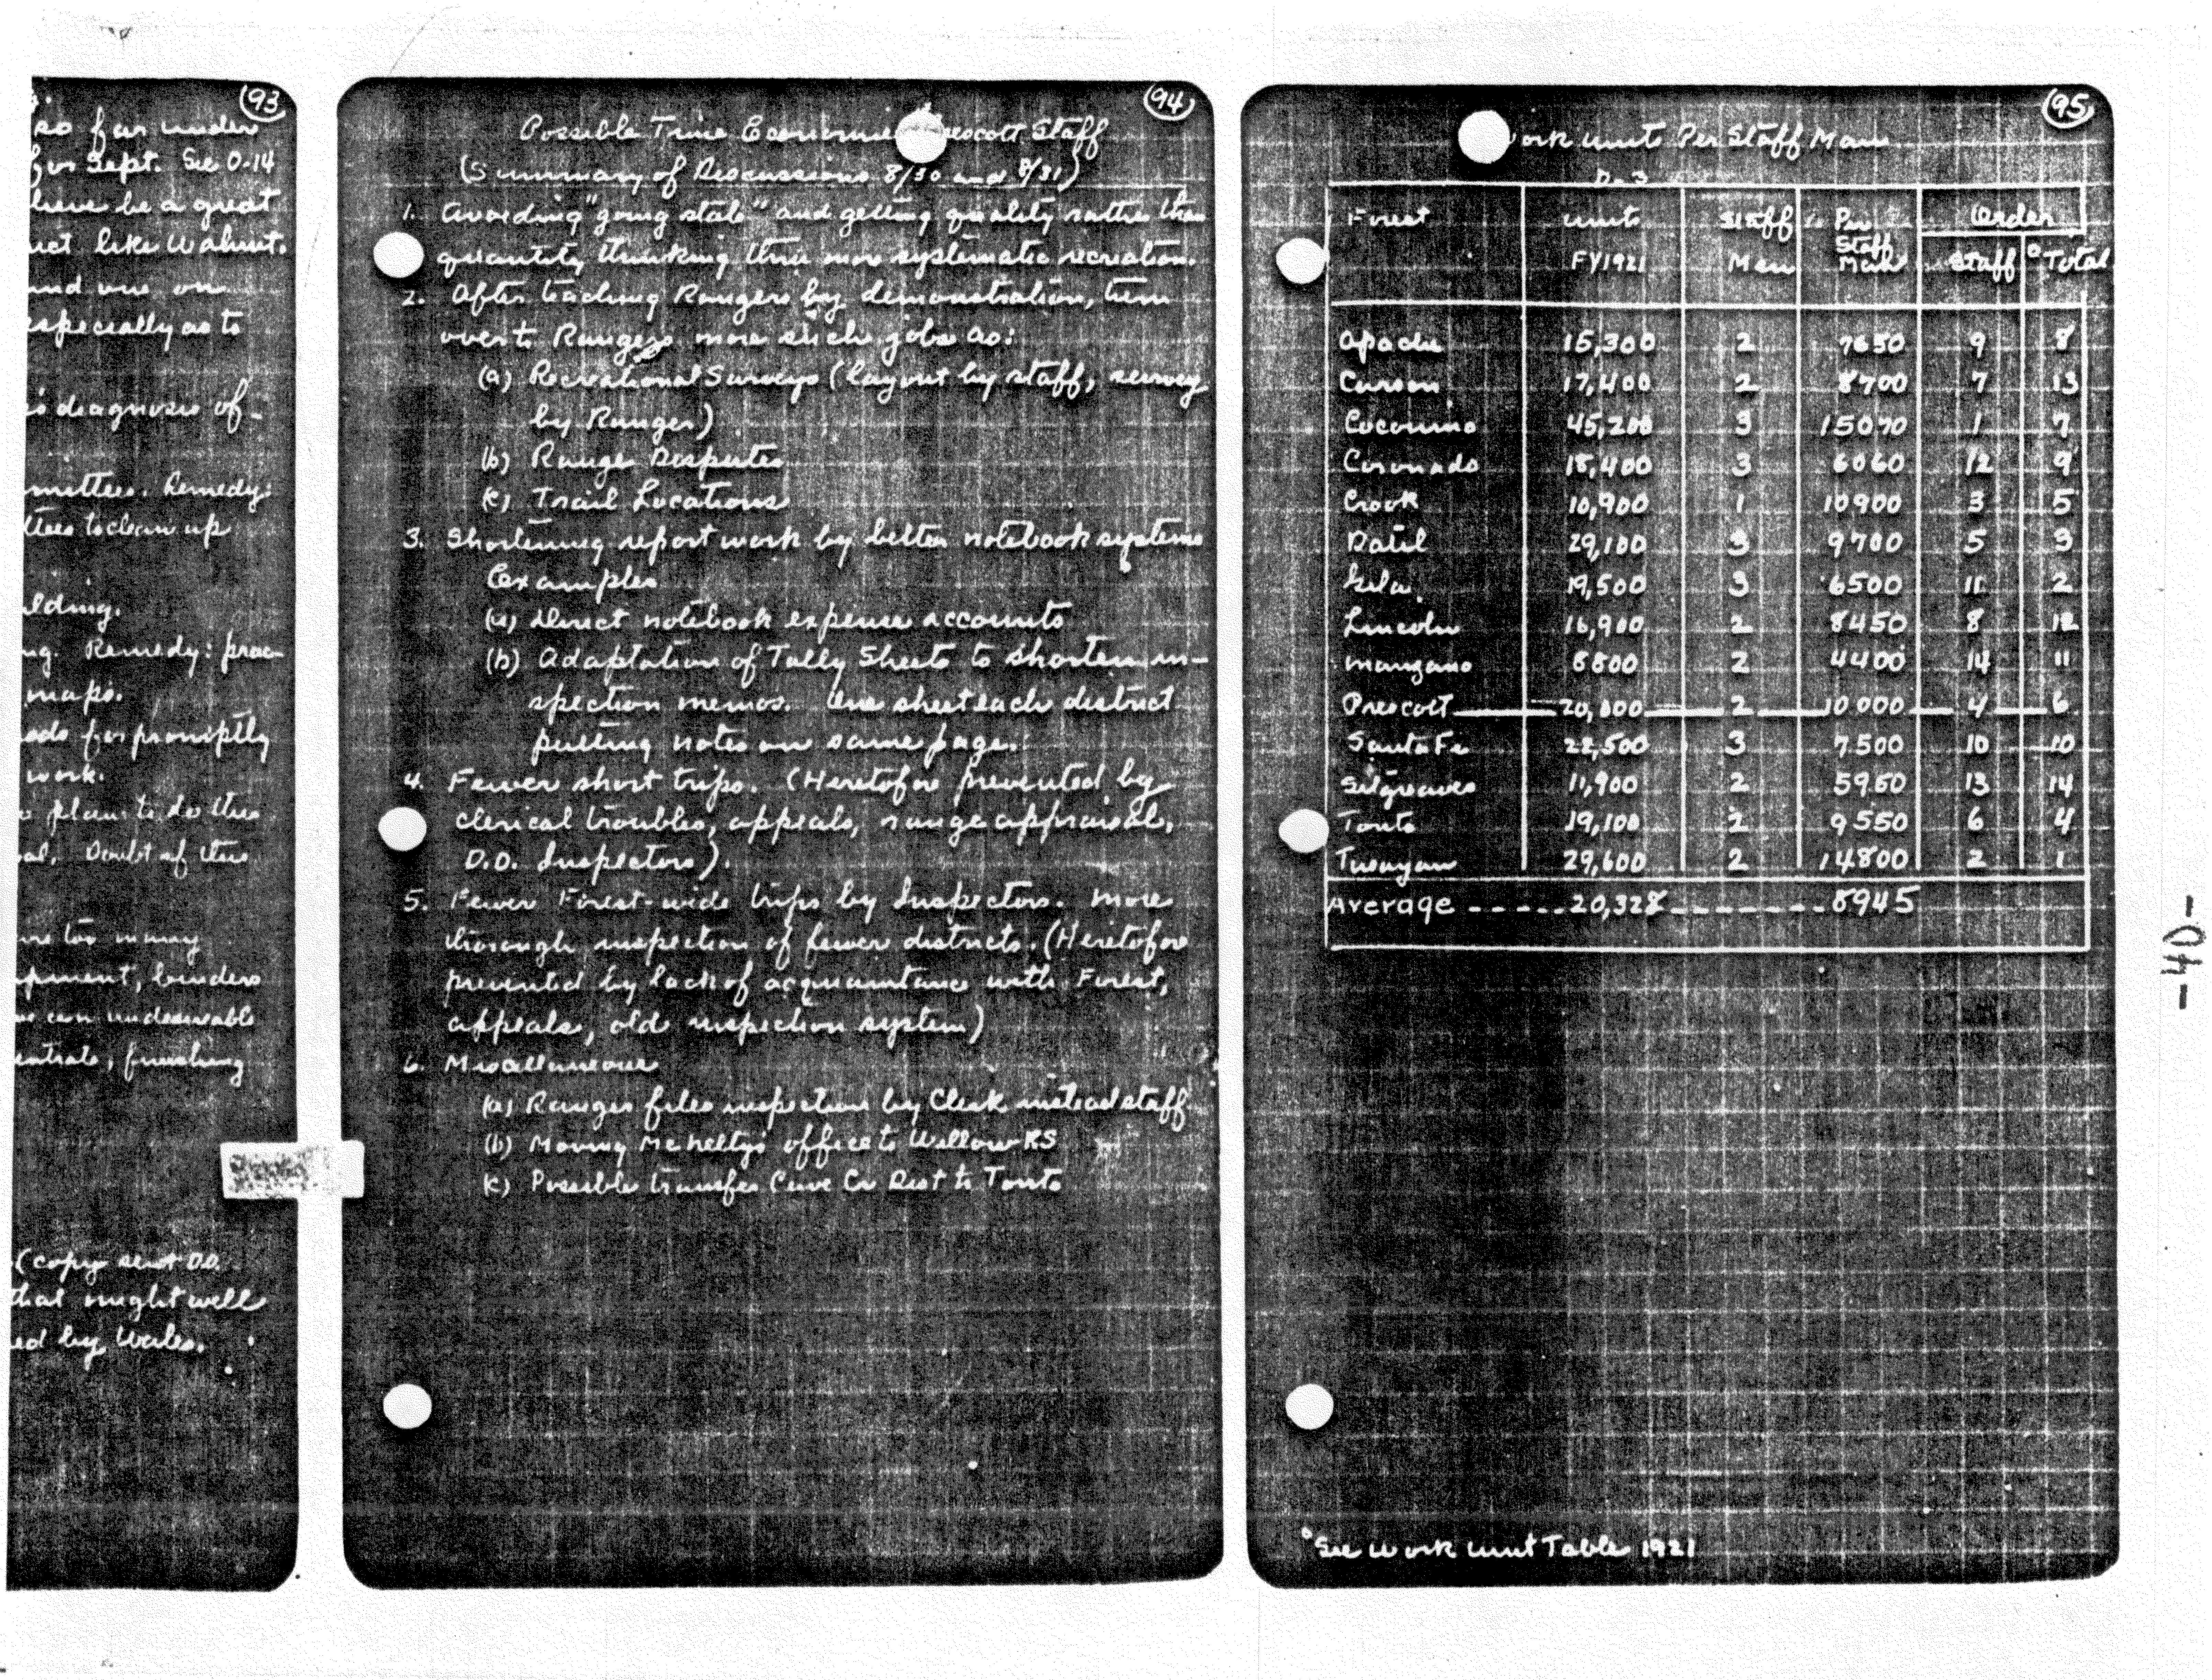 93
so far under
for Sept. See O-14
have be a great
uct like Walnut.
and one on
especially as to
diagnosis of
mittees. Remedy:
ttees to clean up
lding.
ng. Remedy: prac-
maps.
ads for promptly
work.
plan to do this
al. Doubt if this
are too many
ipment, binders
we can undesirable
entrate, finishing
(copy sent D.O.
that might well
ed by Wales.
94
Possible Time Economies Prescott Staff
(Summary of Discussions 8/30 and 8/31)
1. Avoiding "going stale" and getting quality rather than
quantity thinking thru more systematic recreation.
2. After teaching Rangers by demonstration, turn
over to Rangers more such jobs as:
(a) Recreational Surveys (layout by staff, survey
by Ranger)
(b) Range Disputes
(c) Trail Locations
3. Shortening report work by better notebook systems
Examples
(a) Direct notebook expense accounts
(b) Adaptation of Tally Sheets to shorten in-
spection memos. One sheet each district
putting notes on same page.
4. Fewer short trips. (Heretofore prevented by
clerical troubles, appeals, range appraisal,
D.O. Inspectors).
5. Fewer Forest-wide trips by Inspectors. More
thorough inspection of fewer districts. (Heretofore
prevented by lack of acquaintance with Forest,
appeals, old inspection system)
6. Miscellaneous
(a) Ranger files inspection by Clerk instead staff
(b) Moving McNeltys office to Willow RS
(c) Possible transfer Cave Cr Dist to Tonto
95
ork units Per Staff Man
D-3
Forest units Staff Per Order
FY1921 Men Staff Man Staff °Total
Apache 15,300 2 7650 9 8
Carson 17,400 2 8700 7 13
Coconino 45,200 3 15070 1 7
Coronado 18,400 3 6060 12 9
Crook 10,900 1 10900 3 5
Datil 29,100 3 9700 5 3
Gila 19,500 3 6500 11 2
Lincoln 16,900 2 8450 8 12
Manzano 8800 2 4400 14 11
Prescott 20,000 2 10000 4 6
Santa Fe 22,500 3 7500 10 10
Sitgreaves 11,900 2 5950 13 14
Tonto 19,100 2 9550 6 4
Tusayan 29,600 2 14800 2 1
Average -----20,328-------8945
°See Work Unit Table 1921
-40-